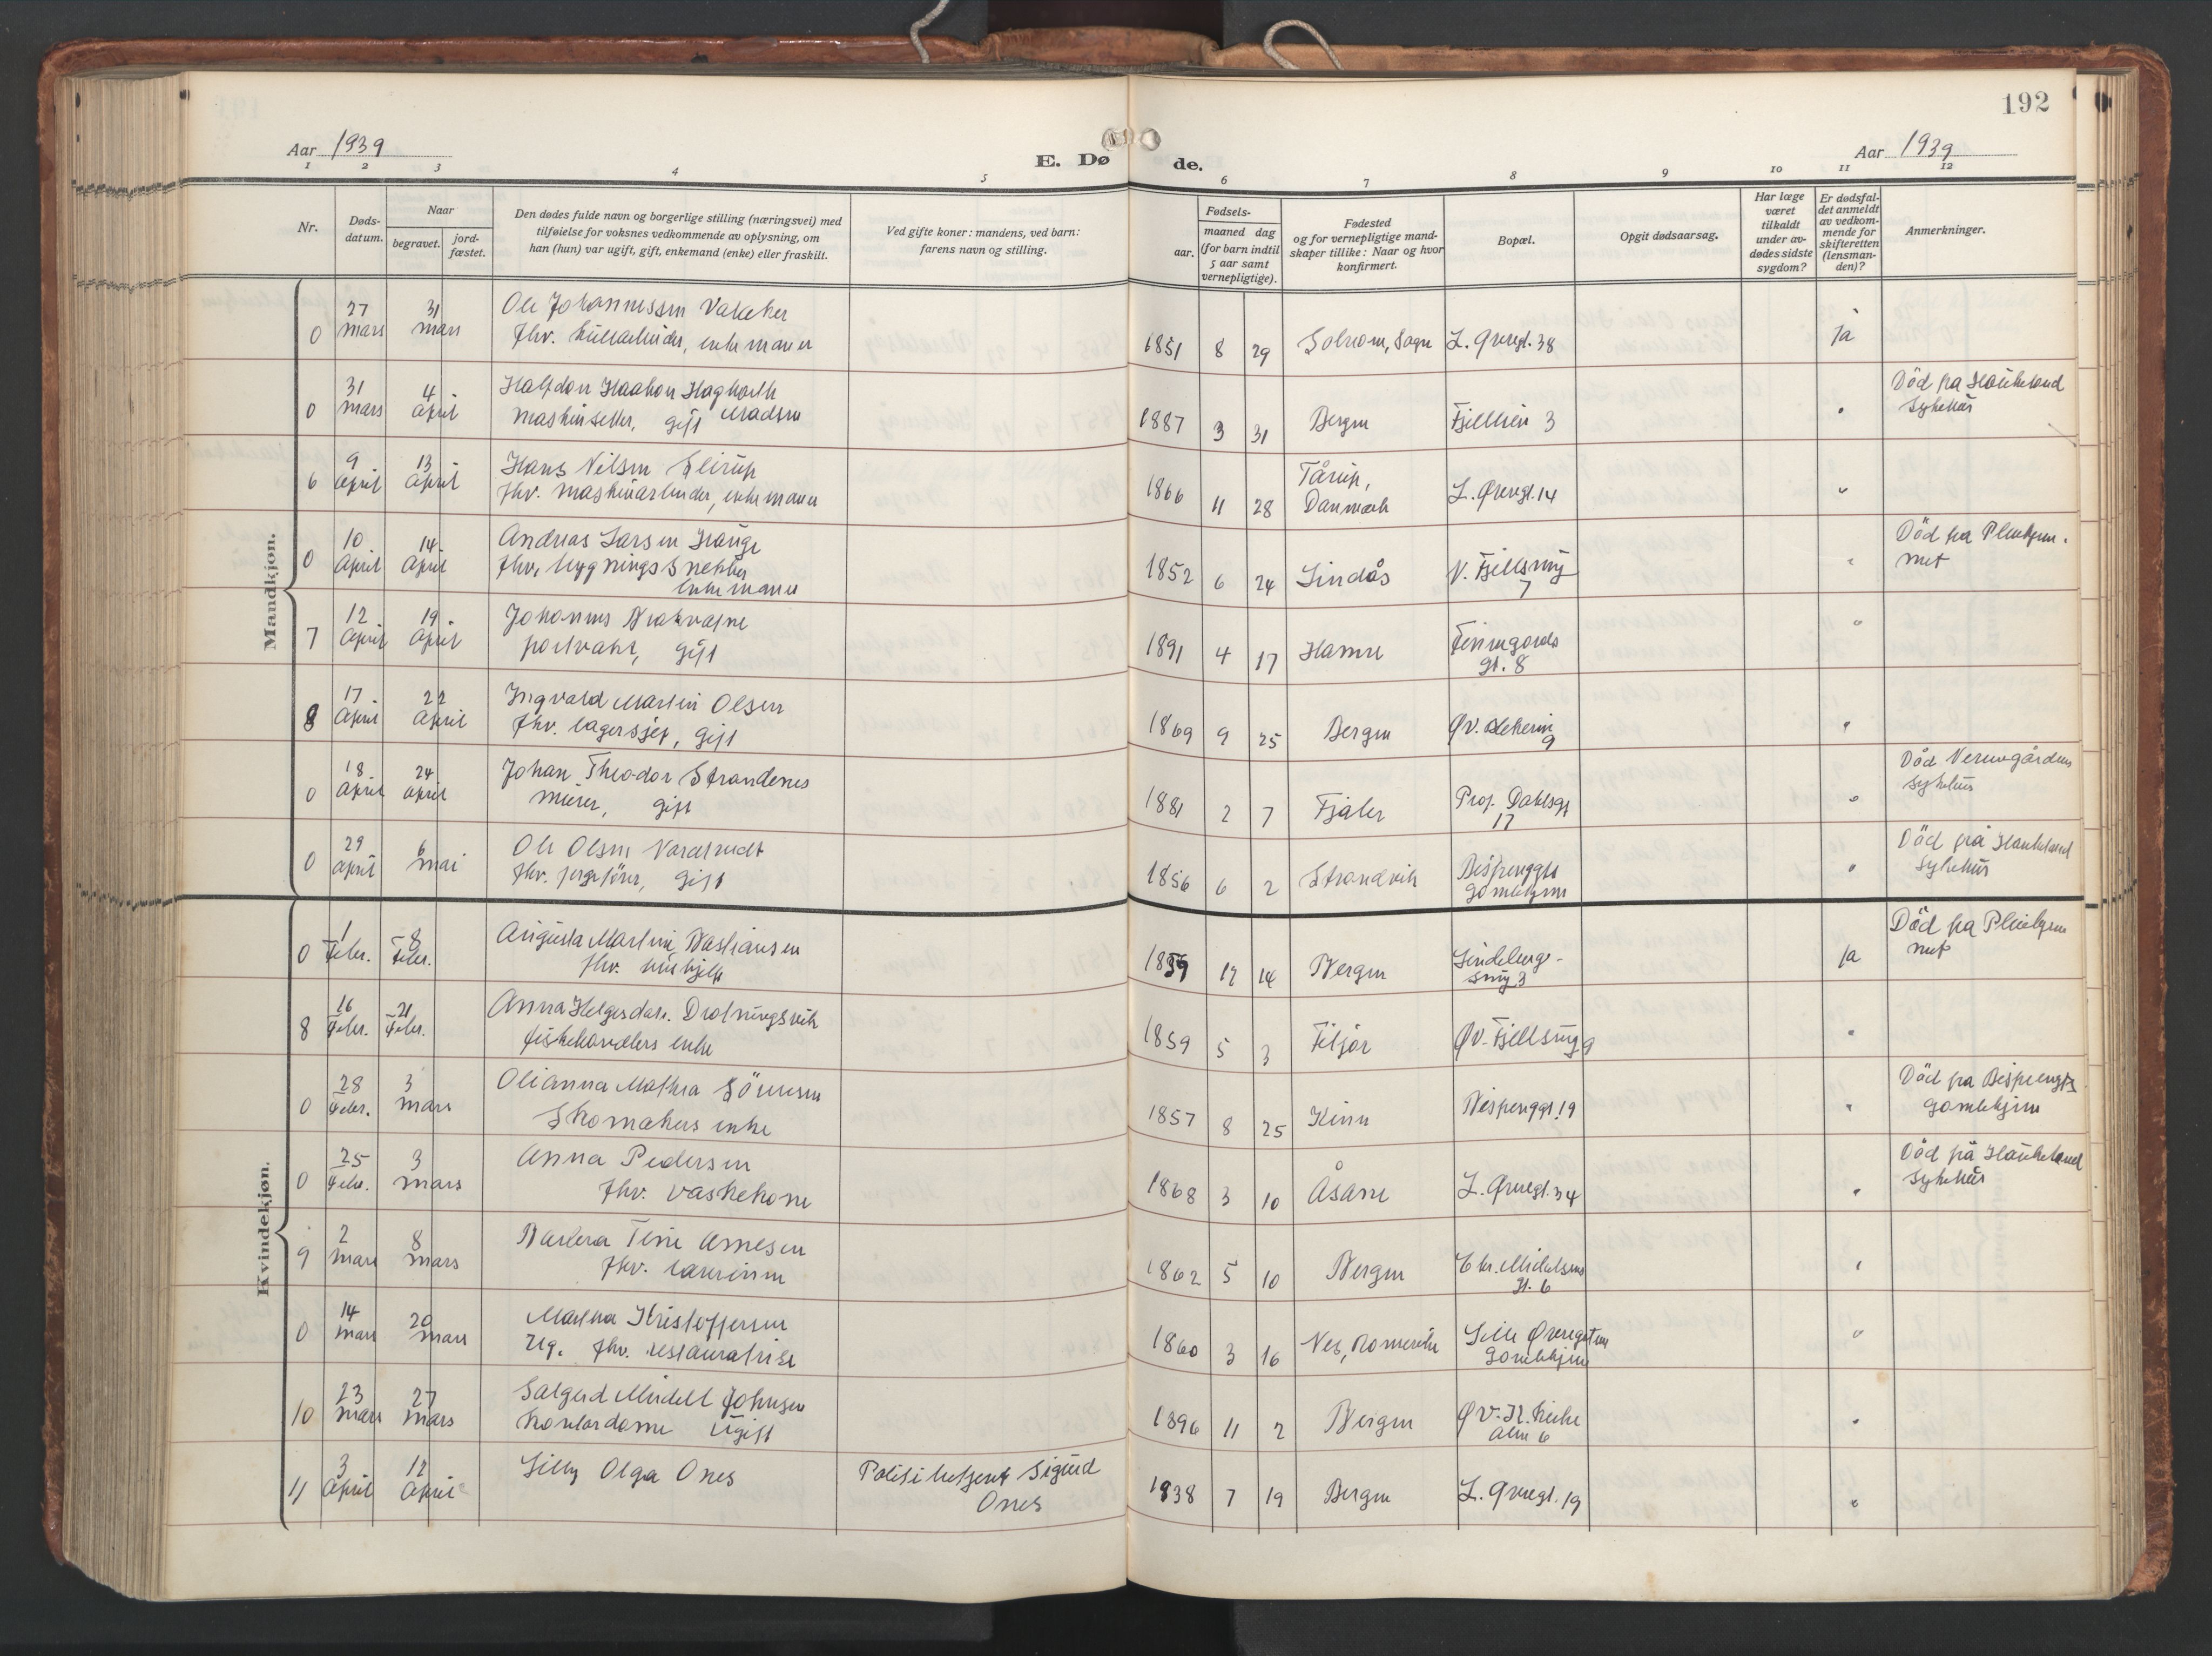 192
Aar 1939
E. Dø
de.
Aar 1939
1 2 3 4 5 6 7 8 9 10 11 12
Nr.
Døds-
datum.
Naar
begravet.
jord-
fæstet.
Den dødes fulde navn og borgerlige stilling (næringsvei) med
tilføielse for voksnes vedkommende av oplysning, om
han (hun) var ugift, gift, enkemand (enke) eller fraskilt.
Ved gifte koner: mandens, ved barn:
farens navn og stilling.
Fødsels-
aar.
maaned dag
(for barn indtil
5 aar samt
vernepligtige).
Fødested
og for vernepligtige mand-
skaper tillike: Naar og hvor
konfirmert.
Bopæl.
Opgit dødsaarsag.
Har læge
været
tilkaldt
under av-
dødes sidste
sygdom?
Er dødsfal-
det anmeldt
av vedkom-
mende for
skifteretten
(lensman-
den)?
Anmerkninger.
Mandkjøn.
0 27 mars 31 mars Ole Johannessen
fhv. enkemann
1851 8 29 Sogn L. Øvregt. 38 ja
0 31 mars 4 april Halfdan Haakon Hagbarth
Madsen
maskinsetter, gift
1887 3 31 Bergen Fjellien 3 "
Död på Haukeland
sykehus
6 9 april 13 april Hans Nilsen
fhv. maskinarbeider, enkemann
1866 11 28 Tårup,
Danmark L. Øvregt. 14 "
0 10 April 14 April Andreas Larsen Hauge
fhv. bygningssnekker
enkemann
1852 6 24 Lindås V. Fjellsmug
7 "
Död på Pleiehjem-
met
7 12 April 19 April Johannes
portvakt, gift
1891 4 17 Hamre Finnegårds
gt. 8 "
8 17 April 22 April Ingvald Martin Olsen
fhv. lagersjef, gift
1869 9 25 Bergen Øv.
9 "
0 18 April 24 april Johan Theodor Strandenes
murer, gift
1881 2 7 Fjaler Prof. Dahlsgt
17 "
Död
sykehus
0 29 april 6 mai Ole Olsen
fhv. gift
1856 6 2 Strandvik Bispenggts
gamlehjem "
Död på Haukeland
sykehus
Kvindekjøn.
0 1 Febr. 8 Febr. Augusta Martine Bastiansen
fhv. hushjelp
1859 12 14 Bergen Lindebergs-
smug 3 ja
Död på Pleiehjem
met
8 16 Febr. 21 Febr. Anna Helgesdatr. Drotningsvik
fiskehandlers enke
1859 5 3 Fitjar Øv. Fjellsmug 9 "
0 28 Febr. 3 mars Olianna Mathea Sörensen
Skomakers enke
1857 8 25 Kinn Bispenggt. 19 "
Död på Bispenggts
gamlehjem
0 25 Febr. 3 mars Anna Pedersen
fhv. vaskekone
1868 3 10 Åsane L. Øvregt. 34 "
Död på Haukeland
sykehus
9 2 mars 8 mars Barbra Tine Arnesen
fhv. lærerinne
1862 5 10 Bergen Chr. Michelsens
gt. 6 "
0 14 mars 20 mars Martha Kristoffersen
Ug. fhv. restauratrise
1860 3 16 Nes, Romerike Lille Øvregaten
Gamlehjem "
10 23 mars 27 mars Johnsen
Kontordame Ugift
1896 11 2 Bergen Øv. Kirke
alm 6 "
11 3 April 12 April Lilly Olga Ones
Politibetjent Sigurd
Ones
1938 7 19 Bergen L. Øvregt. 19 "